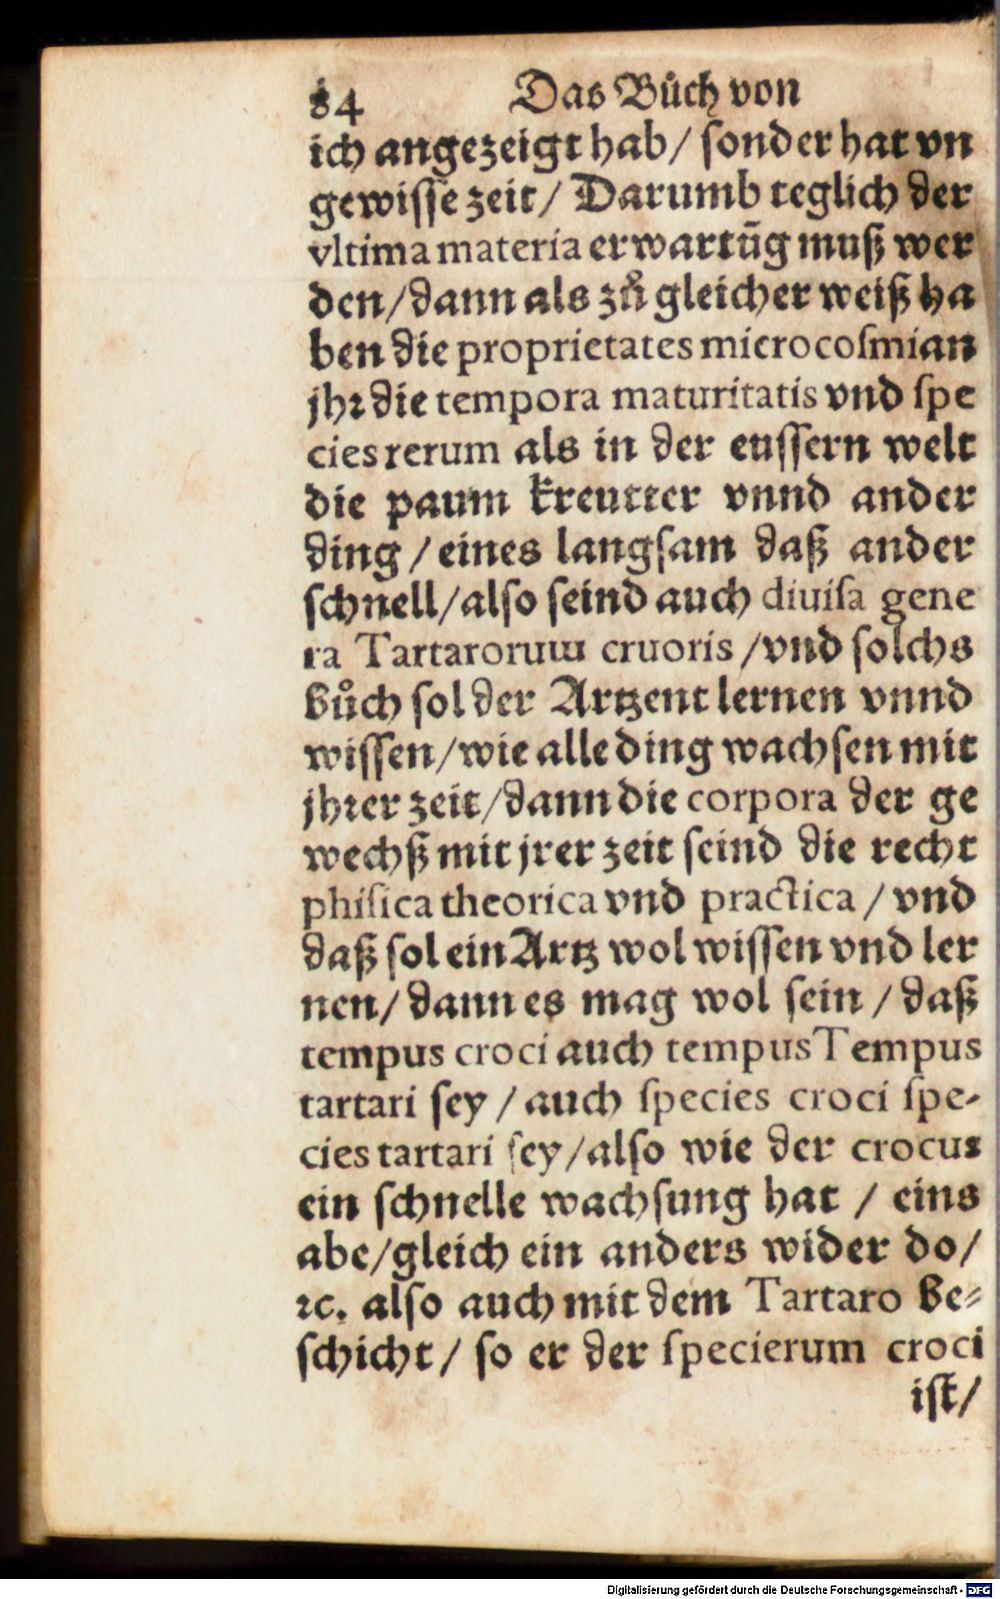 84 Das Bůch von
ich angezeigt hab/ sonder hat vn
gewisse zeit/ Darumb teglich der
vltima materia erwartūg muß wer
den/dann als zů gleicher weiß ha
ben die proprietates microcosmian
jhr die tempora maturitatis vnd spe
cies rerum als in der eussern welt
die paum kreutter vnnd ander
ding / eines langsam daß ander
schnell/also seind auch diuisa gene
ra Tartarorum cruoris /vnd solchs
Bůch sol der Artzent lernen vnnd
wissen/wie alle ding wachsen mit
jhrer zeit/dann die corpora der ge
wechß mit jrer zeit seind die recht
phisica theorica vnd practica / vnd
daß sol ein Artz wol wissen vnd ler
nen/ dann es mag wol sein / daß
tempus croci auch tempus Tempus
tartari sey / auch species croci spe-
cies tartari sey/also wie der crocus
ein schnelle wachsung hat / eins
abe/gleich ein anders wider do/
ꝛc. also auch mit dem Tartaro be-
schicht/ so er der specierum croci
ist/
Digitalisierung gefördert durch die Deutsche Forschungsgemeinschaft - DFG